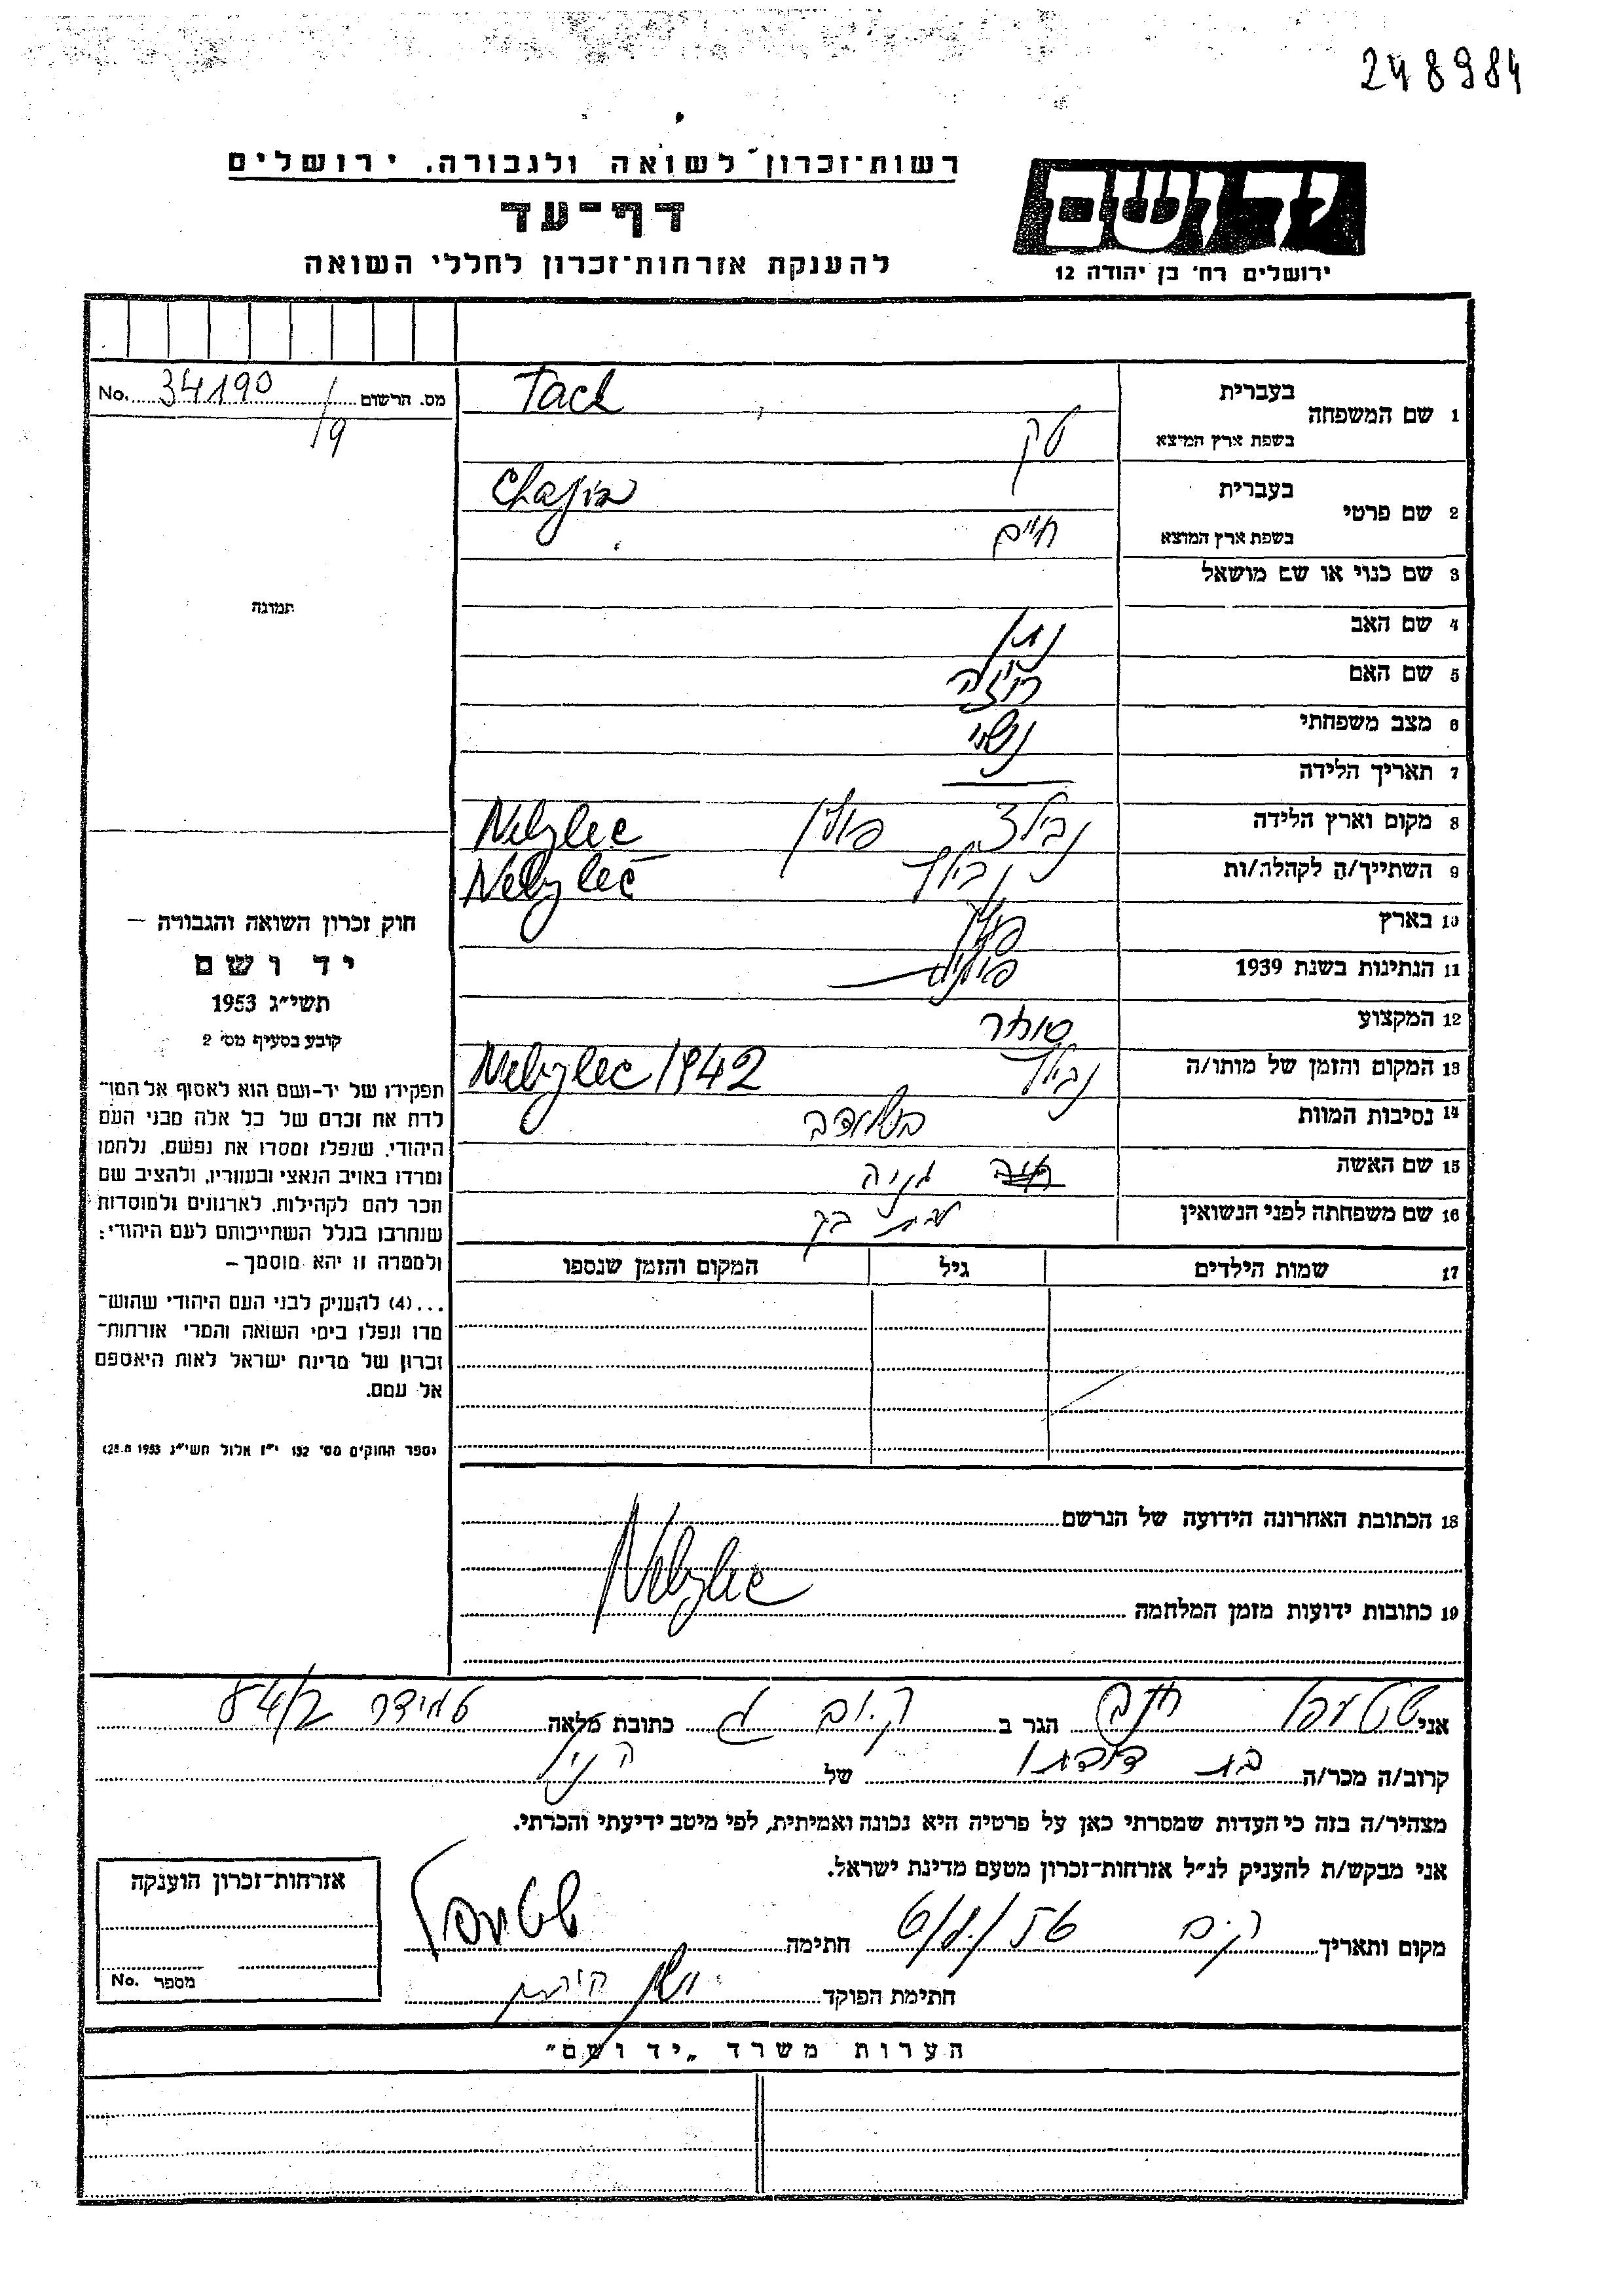 248984
יד ושם
ירושלים רח' בן יהודה 12
רשות־זכרון לשואה ולגבורה, ירושלים
דף־עד
להענקת אזרחות־זכרון לחללי השואה
מס. הרשום 34190 No.
/9
תמונה
1 שם המשפחה
בעברית Tach
בשפת ארץ המוצא טק
2 שם פרטי
בעברית Chajim
בשפת ארץ המוצא חיים
3 שם כנוי או שם מושאל
4 שם האב נתן
5 שם האם רוזה
6 מצב משפחתי נשוי
7 תאריך הלידה —
8 מקום וארץ הלידה פולין Nebylec
9 השתייך/ה לקהלה/ות Nebylec
10 בארץ פולין
11 הנתינות בשנת 1939 פולנית
12 המקצוע סוחר
13 המקום והזמן של מותו/ה Nebylec 1942
14 נסיבות המוות
15 שם האשה
16 שם משפחתה לפני הנשואין
17 שמות הילדים גיל המקום והזמן שנספו
18 הכתובת האחרונה הידועה של הנרשם
Nebylec
19 כתובות ידועות מזמן המלחמה
חוק זכרון השואה והגבורה —
יד ושם
תשי"ג 1953
קובע בסעיף מס' 2
תפקידו של יד-ושם הוא לאסוף אל המו־
לדת את זכרם של כל אלה מבני העם
היהודי, שנפלו ומסרו את נפשם, נלחמו
ומרדו באויב הנאצי ובעוזריו, ולהציב שם
וזכר להם לקהילות, לארגונים ולמוסדות
שנחרבו בגלל השתייכותם לעם היהודי;
ולמטרה זו יהא מוסמך —
...(4) להעניק לבני העם היהודי שהוש־
מדו ונפלו בימי השואה והמרי אזרחות־
זכרון של מדינת ישראל לאות היאספם
אל עמם.
(ספר החוקים מס' 132 י"ז אלול תשי"ג 28.8.1953)
אני הגר ב כתובת מלאה 84/2
קרוב/ה מכר/ה בת דודתו של הנ"ל
מצהיר/ה בזה כי העדות שמסרתי כאן על פרטיה היא נכונה ואמיתית, לפי מיטב ידיעתי והכרתי.
אני מבקש/ת להעניק לנ"ל אזרחות־זכרון מטעם מדינת ישראל.
מקום ותאריך ק.ים חתימה
חתימת הפוקד
אזרחות־זכרון הוענקה
מספר No.
הערות משרד „יד ושם"